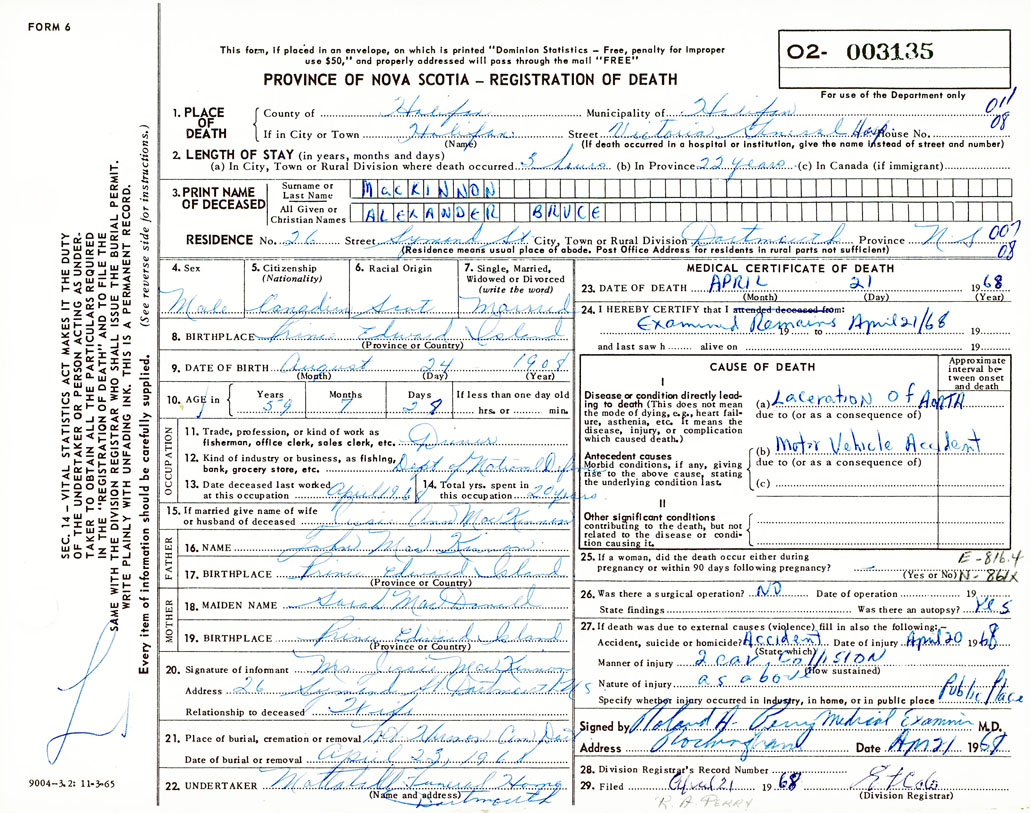 FORM 6
This form, if placed in an envelope, on which is printed "Dominion Statistics – Free, penalty for improper
use $50," and properly addressed will pass through the mail "FREE"
PROVINCE OF NOVA SCOTIA – REGISTRATION OF DEATH
02- 003135
For use of the Department only
011
08
1. PLACE OF DEATH
County of Halifax Municipality of Halifax
If in City or Town Halifax Street Victoria General Hosp House No.
(Name) (If death occurred in a hospital or institution, give the name instead of street and number)
2. LENGTH OF STAY (in years, months and days)
(a) In City, Town or Rural Division where death occurred 3 hours (b) In Province 22 years (c) In Canada (if immigrant)
3. PRINT NAME OF DECEASED
Surname or Last Name MacKINNON
All Given or Christian Names ALEXANDER BRUCE
RESIDENCE No. 26 Street Symond St City, Town or Rural Division Dartmouth Province N.S
(Residence means usual place of abode. Post Office Address for residents in rural parts not sufficient)
007
08
4. Sex Male
5. Citizenship (Nationality) Canadian
6. Racial Origin Scot
7. Single, Married, Widowed or Divorced (write the word) Married
8. BIRTHPLACE Prince Edward Island
(Province or Country)
9. DATE OF BIRTH August 24 1908
(Month) (Day) (Year)
10. AGE in Years 59 Months 7 Days 28 If less than one day old hrs. or min.
OCCUPATION
11. Trade, profession, or kind of work as fisherman, office clerk, sales clerk, etc. Driver
12. Kind of industry or business, as fishing, bank, grocery store, etc. Dept of National Defence
13. Date deceased last worked at this occupation April 1968
14. Total yrs. spent in this occupation 20 years.
15. If married give name of wife or husband of deceased Jessie Ann MacKinnon
FATHER
16. NAME John MacKinnon
17. BIRTHPLACE Prince Edward Island
(Province or Country)
MOTHER
18. MAIDEN NAME Sarah MacDonald
19. BIRTHPLACE Prince Edward Island
(Province or Country)
20. Signature of informant Mrs Jessie MacKinnon
Address 26 Symond St Dartmouth N.S
Relationship to deceased Wife
21. Place of burial, cremation or removal
Date of burial or removal April 23, 1968
22. UNDERTAKER Mattatall Funeral Home
(Name and address) Dartmouth
MEDICAL CERTIFICATE OF DEATH
23. DATE OF DEATH APRIL 21 1968
(Month) (Day) (Year)
24. I HEREBY CERTIFY that I attended deceased from:
Examined Remains April 21/68 19 to 19
and last saw h alive on 19
CAUSE OF DEATH
Approximate interval between onset and death
I
Disease or condition directly leading to death (This does not mean the mode of dying, e.g., heart failure, asthenia, etc. It means the disease, injury, or complication which caused death.)
(a) Laceration of AORTA
due to (or as a consequence of)
Antecedent causes
Morbid conditions, if any, giving rise to the above cause, stating the underlying condition last.
(b) Motor Vehicle Accident
due to (or as a consequence of)
(c)
II
Other significant conditions contributing to the death, but not related to the disease or condition causing it.
25. If a woman, did the death occur either during
pregnancy or within 90 days following pregnancy?
(Yes or No)
E-816.4
N-861X
26. Was there a surgical operation? NO Date of operation 19
State findings Was there an autopsy? Yes
27. If death was due to external causes (violence) fill in also the following:
Accident, suicide or homicide? Accident Date of injury April 20 1968
(State which)
Manner of injury 2 car collision
(How sustained)
Nature of injury as above
Specify whether injury occurred in Industry, in home, or in public place Public Place
Signed by Roland A. Perry Medical Examiner M.D.
Address Rockingham Date Apr 21 1968
28. Division Registrar's Record Number
29. Filed April 21 1968
(Division Registrar)
R. A PERRY
SEC. 14 – VITAL STATISTICS ACT MAKES IT THE DUTY
OF THE UNDERTAKER OR PERSON ACTING AS UNDER-
TAKER TO OBTAIN ALL THE PARTICULARS REQUIRED
IN THE "REGISTRATION OF DEATH" AND TO FILE THE
SAME WITH THE DIVISION REGISTRAR WHO SHALL ISSUE THE BURIAL PERMIT.
WRITE PLAINLY WITH UNFADING INK. THIS IS A PERMANENT RECORD.
Every item of information should be carefully supplied. (See reverse side for instructions.)
9004–3.2: 11-3-65